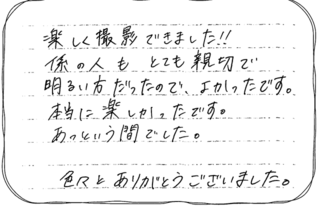 楽しく撮影できました!!
係の人も とても親切で
明るい方だったので、よかったです。
本当に楽しかったです。
あっという間でした。
色々とありがとうございました。